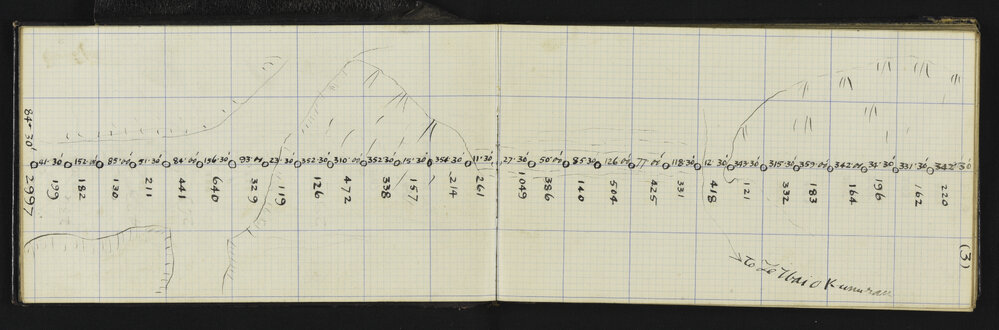 (3)
84°30'
51·30' 152·00' 85·00' 51·30' 84·00' 156·30' 93·00' 23·30' 352·30' 310·00' 352·30' 15·30' 354·30' 11·30' 27·30' 50·00' 85·30' 126·00' 77·00' 118·30' 12·30' 343·30' 315·30' 359·00' 342·00' 31·30' 331·30' 342°30'
2997 199 182 130 211 441 640 329 119 126 472 338 157 214 261 1049 386 140 504 425 331 418 121 332 183 164 196 162 220
to Te Whaio Kunuran